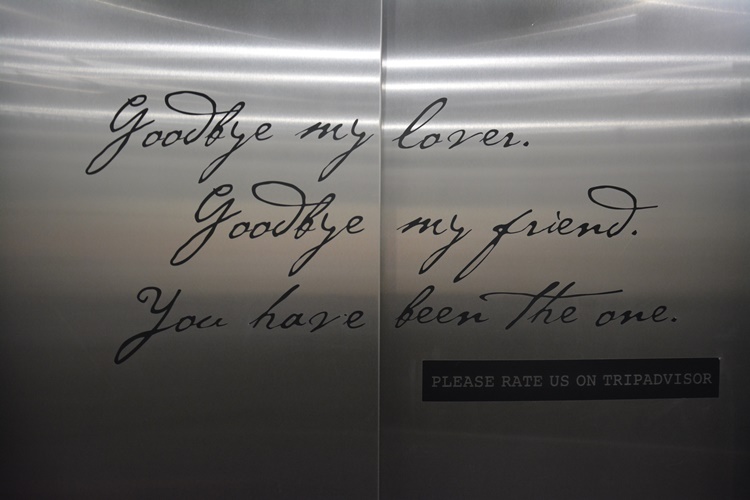 Goodbye my lover.
Goodbye my friend.
You have been the one.
PLEASE RATE US ON TRIPADVISOR